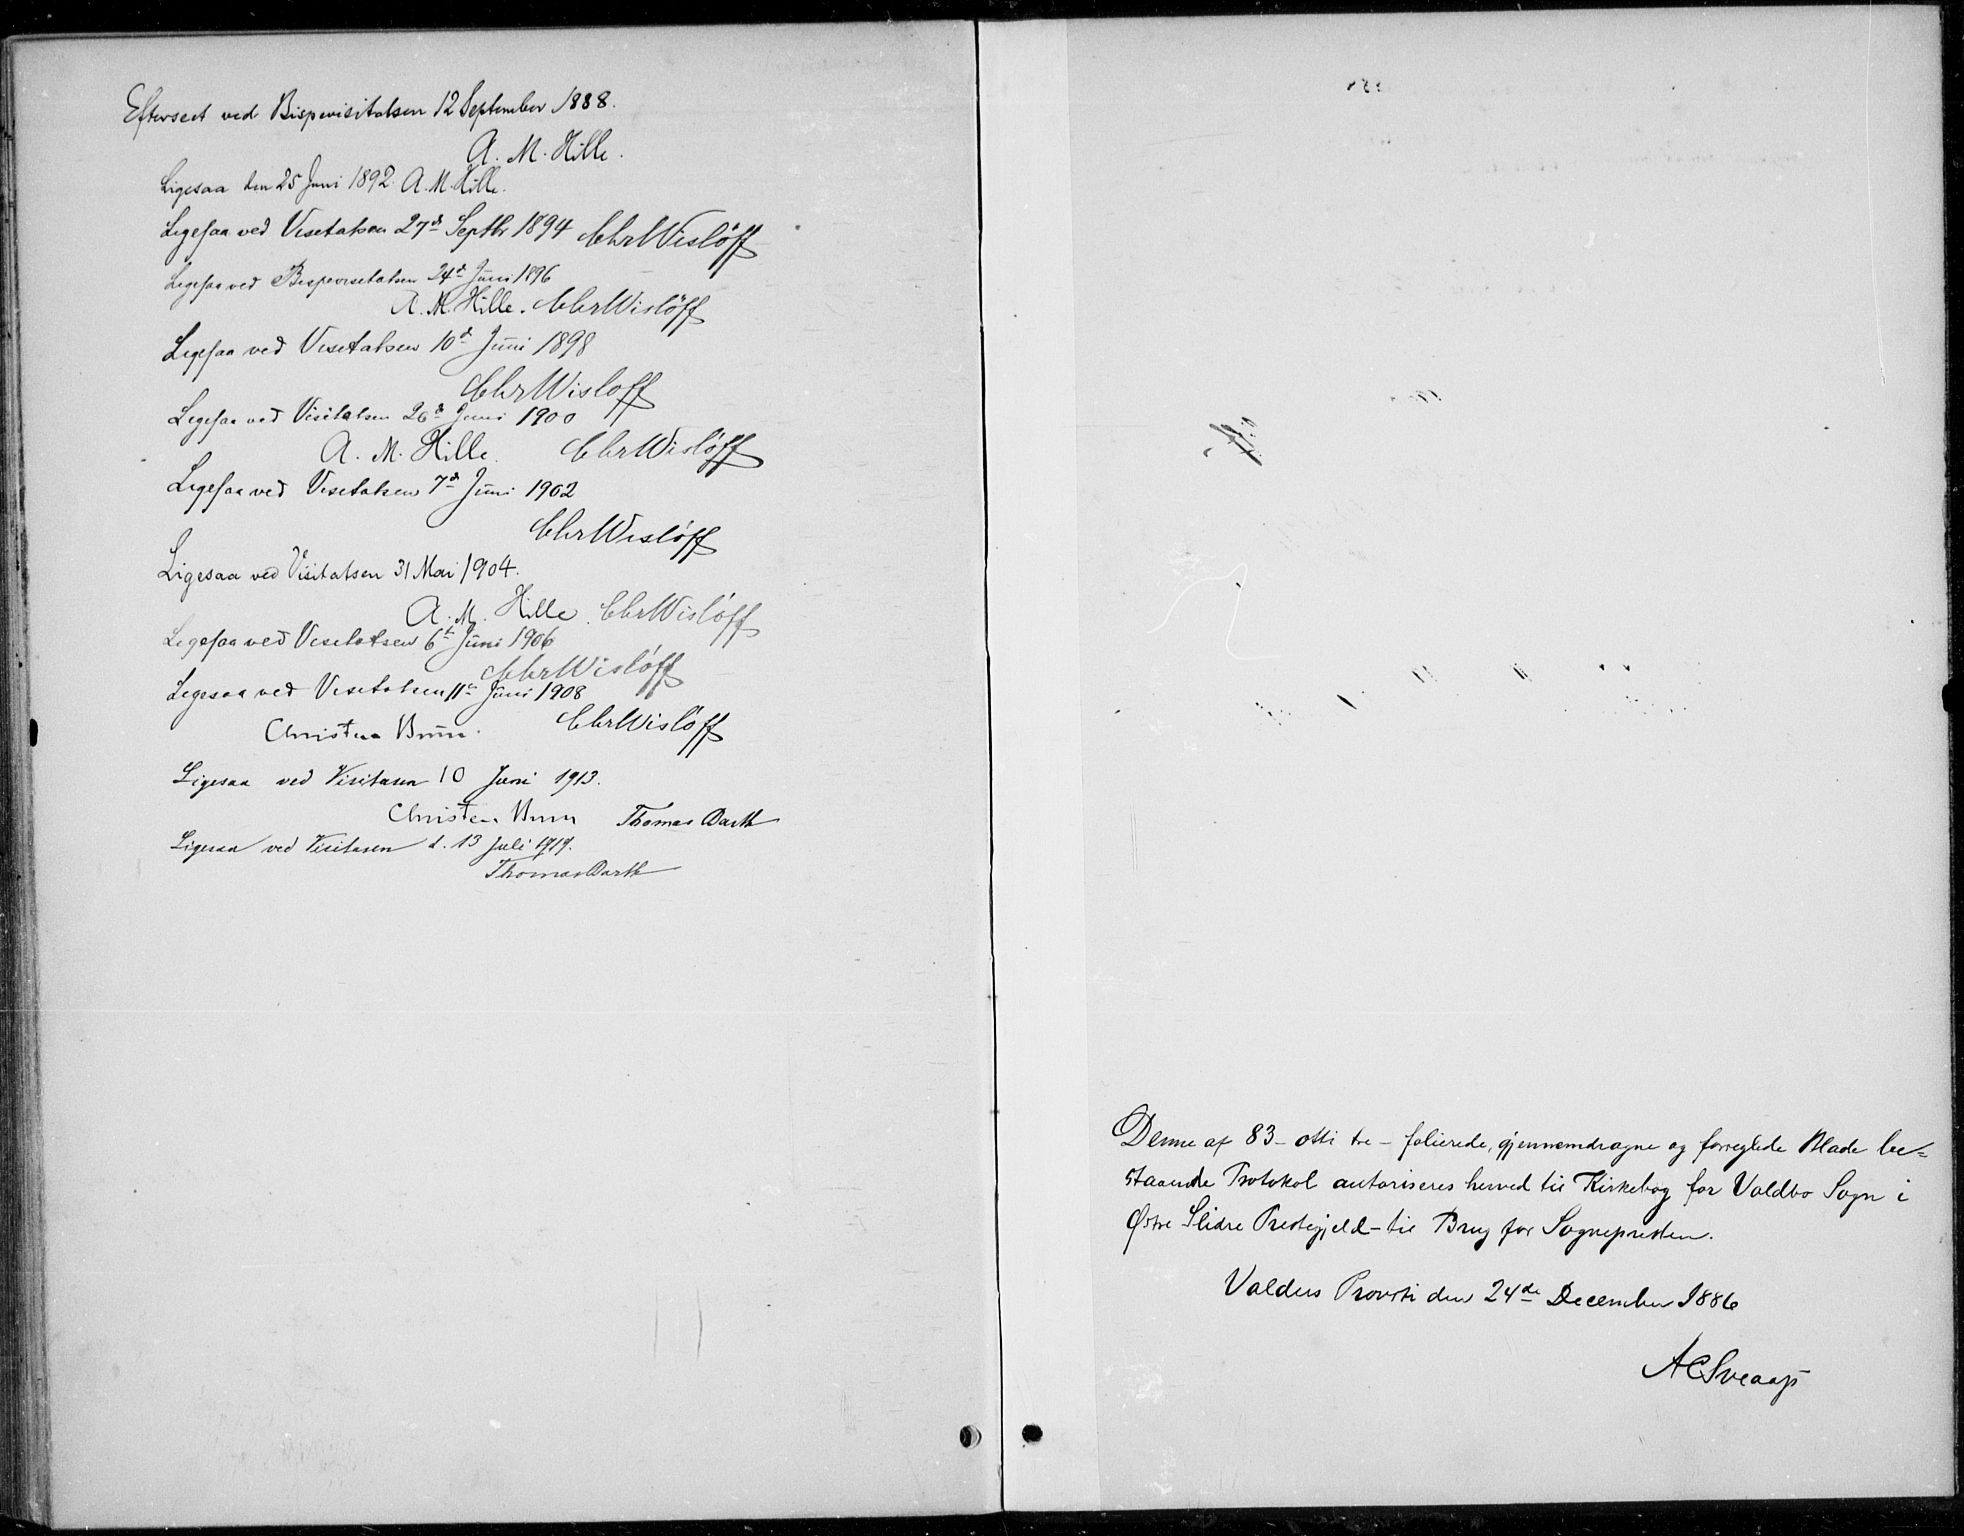 Efterseet ved Bispevisitatsen 12 September 1888.
A. M. Hille.
Ligesaa den 25 Juni 1892. A. M. Hille.
Ligesaa ved Visitatsen 27d Septbr 1894 Chr Wisløff
Ligesaa ved Bispevisitatsen 24d Juni 1896
A. M. Hille. Chr Wisløff
Ligesaa ved Visitatsen 10d Juni 1898
Chr Wisløff
Ligesaa ved Visitatsen 26d Juni 1900
A. M. Hille. Chr Wisløff
Ligesaa ved Visitatsen 7d Juni 1902
Chr Wisløff
Ligesaa ved Visitatsen 31 Mai 1904.
A. M. Hille. Chr Wisløff
Ligesaa ved Visitatsen 6te Juni 1906
Chr Wisløff
Ligesaa ved Visitatsen 11te Juni 1908
Christen Brun. Chr Wisløff
Ligesaa ved Visitasen 10 Juni 1913.
Christen Brun Thomas Barth
Ligesaa ved Visitasen d. 13 Juli
Thomas Barth
Denne af 83 - otti tre - folierede, gjennemdragne og forseglede Blade be=
staaende Protokol autoriseres herved til Kirkebog for Voldbo Sogn i
Østre Slidre Prestegjeld - til Brug for Sognepresten.
Valders Provsti den 24de December 1886